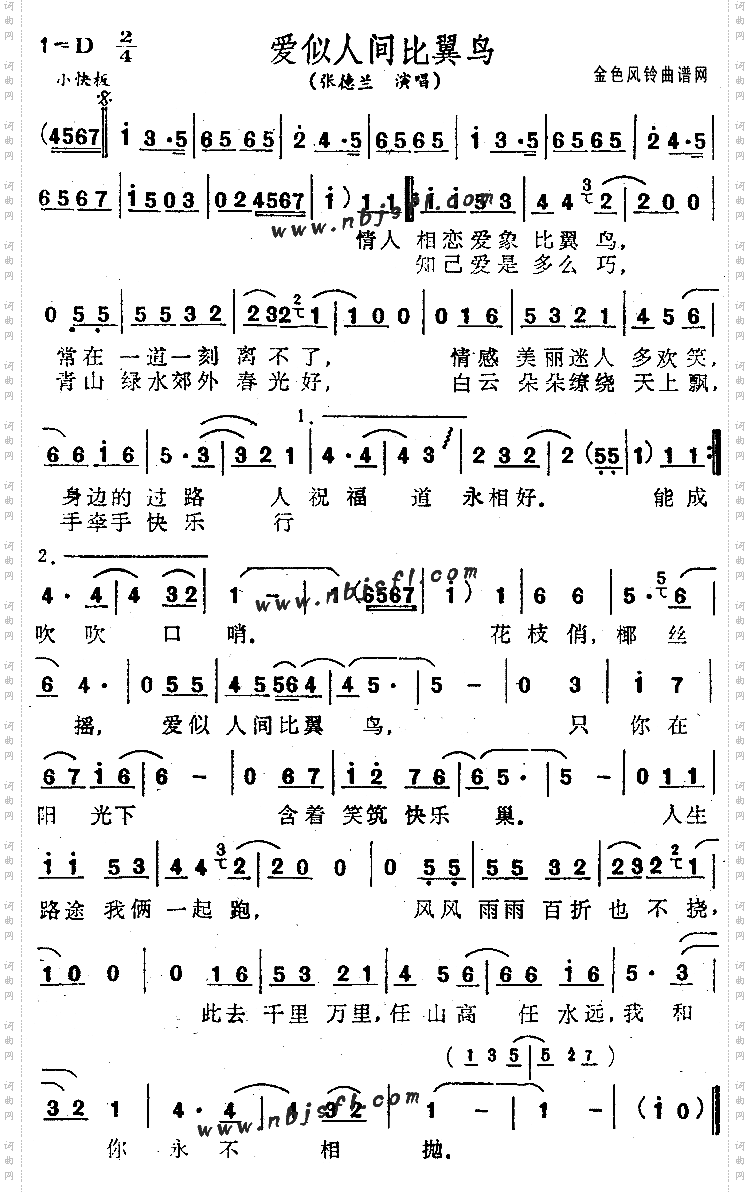 1=D 2/4 爱似人间比翼鸟
小快板 (张德兰 演唱) 金色风铃曲谱网
(4567 | i 3·5 | 65 65 | 2 4·5 | 6565 | i 3·5 | 65 65 | 2 4·5 |
6567 | i503 | 024567 | i) 11 :| i i 53 | 44 3 2 | 200 |
www.nbjsfl.com
情人 相恋爱象 比翼 鸟,
知己爱是 多么 巧,
0 55 | 5532 | 232 2 1 | 100 | 016 | 5321 | 456 |
常在 一道一刻 离不了, 情感 美丽迷人 多欢笑,
青山 绿水郊外 春光好, 白云 朵朵缭绕 天上飘,
1.
66i6 | 5·3 | 321 | 4·4 | 43 | 232 | 2(55 | 1) 11 :|
身边的 过路 人祝福 道 永相好. 能成
手牵手 快乐 行
2.
4·4 | 4 32 | 1 - | 1 (6567 | i) 1 | 6 6 | 5· 5 6 |
www.nbjsfl.com
吹吹 口 哨. 花 枝俏,椰 丝
6 4· | 055 | 45564 | 45· | 5 - | 0 3 | i 7 |
摇, 爱似 人间比翼 鸟, 只 你在
67i6 | 6 - | 0 67 | i2 76 | 65· | 5 - | 011 |
阳 光下 含着 笑筑 快乐 巢. 人生
i i 53 | 44 3 2 | 200 | 0 55 | 55 32 | 232 2 1 |
路途 我俩 一起 跑, 风风 雨雨 百折 也 不 挠,
100 | 0 16 | 53 21 | 4 56 | 66 i6 | 5·3 |
此去 千里 万里,任 山高 任 水远,我 和
(135 | 5 27)
32 1 | 4·4 | 4 32 | 1 - | 1 - | (i0) ||
www.nbjsfl.com
你 永 不 相 抛.
词曲网